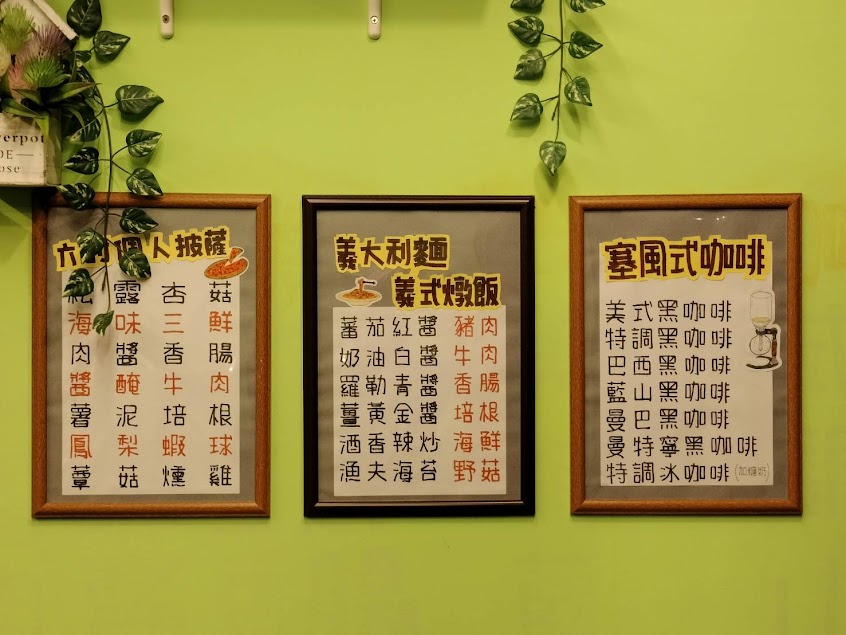 erpot
DE
ose
人披薩
露杏菇
海味三鮮
肉醬香腸
醬醃牛肉
薯泥培根
鳳梨蝦球
蕈菇燻雞
義大利麵
義式燉飯
蕃茄紅醬 豬肉
奶油白醬 牛肉
羅勒青醬 香腸
薑黃金醬 培根
酒香辣炒 海鮮
漁夫海苔 野菇
塞風式咖啡
美式黑咖啡
特調黑咖啡
巴西黑咖啡
藍山黑咖啡
曼巴黑咖啡
曼特寧黑咖啡
特調冰咖啡(加糖奶)